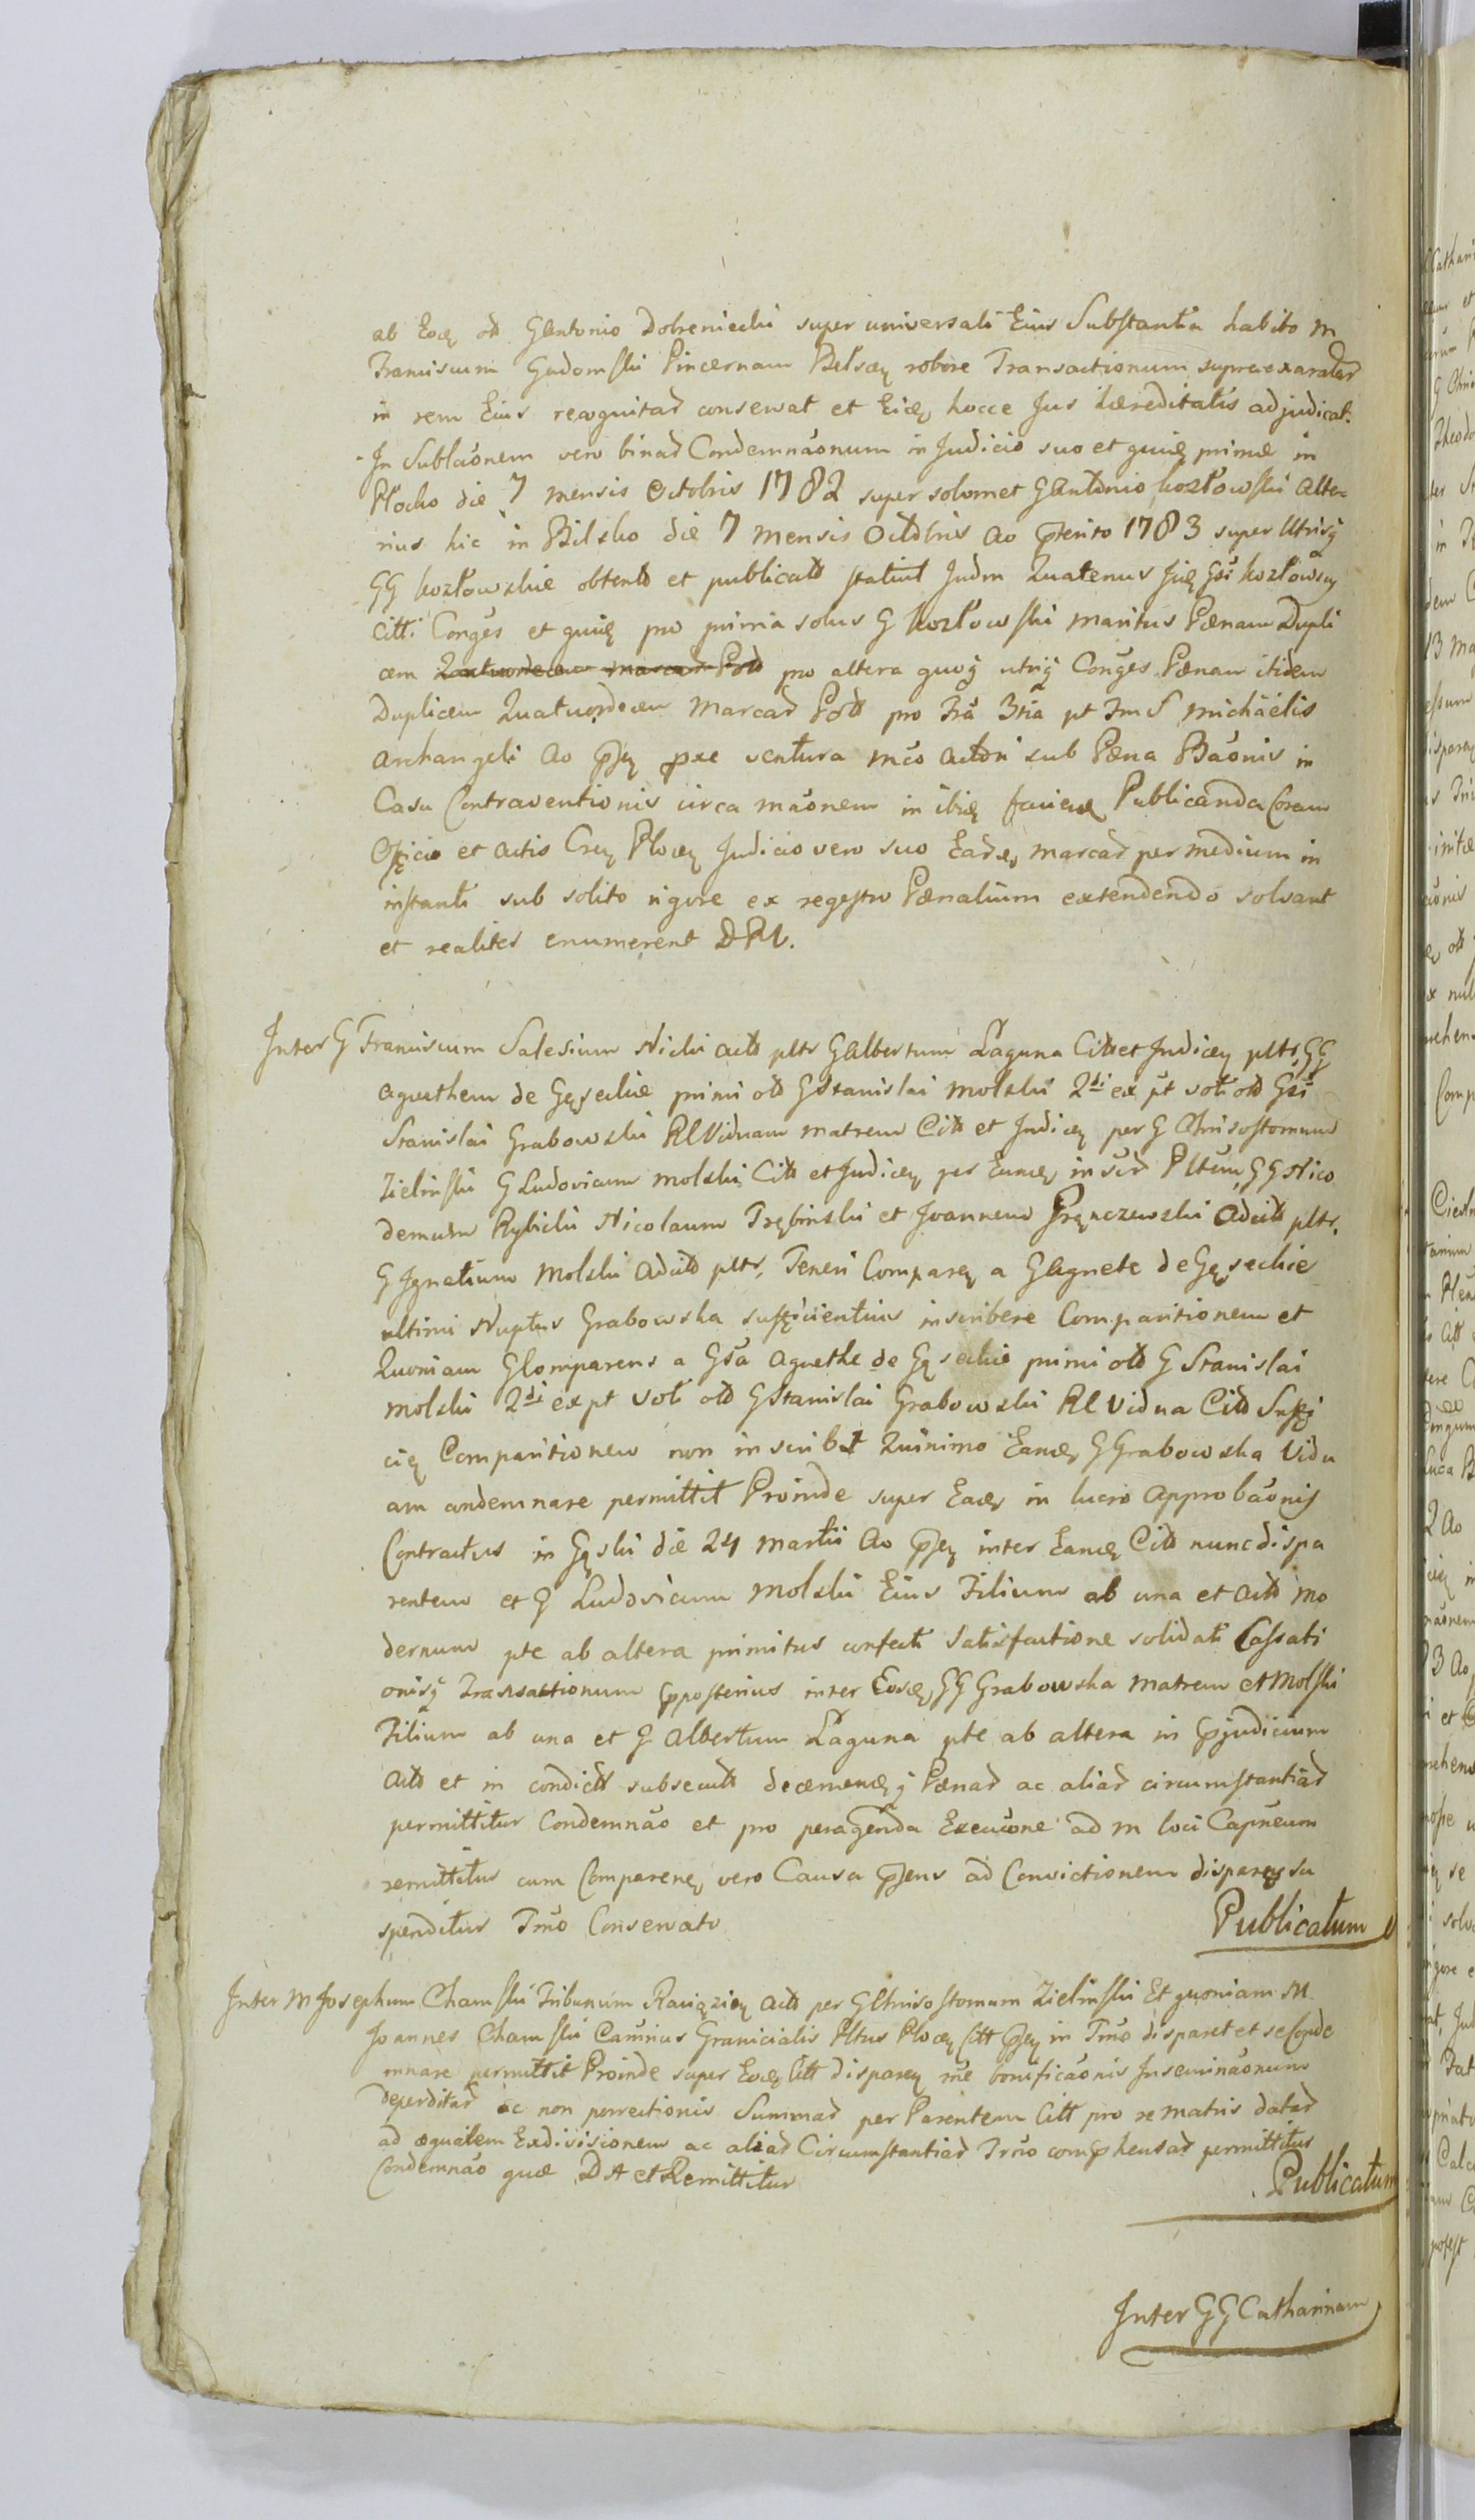 ab Eoq olt G Antonio Dobrenieciki super universali Eius Substantia habito M
Franciscum Gadomski Pincernam Belsaq robore Transactionum supraexaratar
in rem Eius recognitar conservat et Eidę hocce Jus hæreditatis adjudicat.
In Sublaonem vero binar Condemnaonum in Judicio suo et quię primæ in
Płocko die 7 mensis Octobris 1782 super solomet G Antonio Kozłowski Alte-
rius hic in Bilsko die 7 Mensis Octobris Ao Pterito 1783 super Utrisq
GG Kozłowskie obtent et publicatt statuit Judm Quatenus Jię Gsi Kozłowscy
Citti Conges et quię pro prima solus G Kozłowski maritus Pænam Dupli
cem Quatuordecem marcar Polt pro altera quoq utriq Conges Pænam itidem
Duplicem Quatuordecem Marcar Polt pro Fra 3tia pt Fm S Michaelis
Archangeli Ao Psę pxe ventura mco Actori sub Pæna Baonis in
Casu Contraventionis circa maonem in ibię faciend Publicanda Coram
Officio et Actis Creq Płocq Judicio vero suo Earde Marcar per medium in
instanti sub solito rigore ex regestro Pænalium extendendo solvant
et realiter enumerent DPL.
Inter G Franciscum Salesium Nicki Actt pltr G Albertum Łaguna Citt et Judicq pltr GG
Agnethem de Gęseckie primi olt G Stanislai Molski 2di ex pt voti olt Gsi
Stanislai Grabowski RL Viduam matrem Citt et Judicq per G Chrisostomum
Zielinski G Ludovicum Molski Citt et Judicq per Eundę inscr Pltum, GG Nico
demum Rybicki Nicolaum Trębinski et Joannem Pręnczewski Adcitt pltr.
G Ignatium Molski Adcitt pltr, Teneri Comparę a G Agnete de Gęseckie
ultimi Nuptus Grabowska sufficientius inscribere Comparitionem et
Quoniam G Comparens a Gsa Agnethe de Gęseckie primi olt G Stanislai
Molski 2di ex pt voti olt G Stanislai Grabowski RL Vidua Citt Suffi
cię Comparitionem non inscribit Quinimo Eandę G Grabowska Vidu
am condemnare permittit Proinde super Eadę in lucro Approbaonis
Contractus in Gąski die 24 Martii Ao Psę inter Eandę Citt nunc dispa
rentem et G Ludovicum Molski Eius Filium ab una et Actt Mo
dernum pte ab altera primitus confecti Satisfactione solidati Cassati
onisq Transactionum Pposterius inter Eosdę GG Grabowska Matrem et Molski
Filium ab una et G Albertum Łaguna pte ab altera in Pjudicium
Actt et in condictt subsecutt decemendęq Pænar ac aliar circumstantiar
permittitur Condemnao et pro peragenda Execuone ad M loci Capneum
remittitur cum Comparenę vero Causa Psens ad Convictionem disparęę su
spenditur Tmo Conservato
Publicatum
Inter M Josephum Chamski Tribunum Raciąziq Actt per G Chrisostomum Zielinski Et quoniam M
Joannes Chamski Camrius Granicialis Pltus Plocq Citt Psę in Tmo disparet et se Conde
mnare permittit Proinde super Eodę Citt disparę rne bonificaonis Inseminaonum
deperditar ac non porrectionis Summar per Parentem Citt pro re matris datar
ad æqualem Exdivisionem ac aliar Circumstantiar Tmo comphensar permittitur
Condemnao quæ DA et Remittitur
Publicatum
Inter GG Catharinam